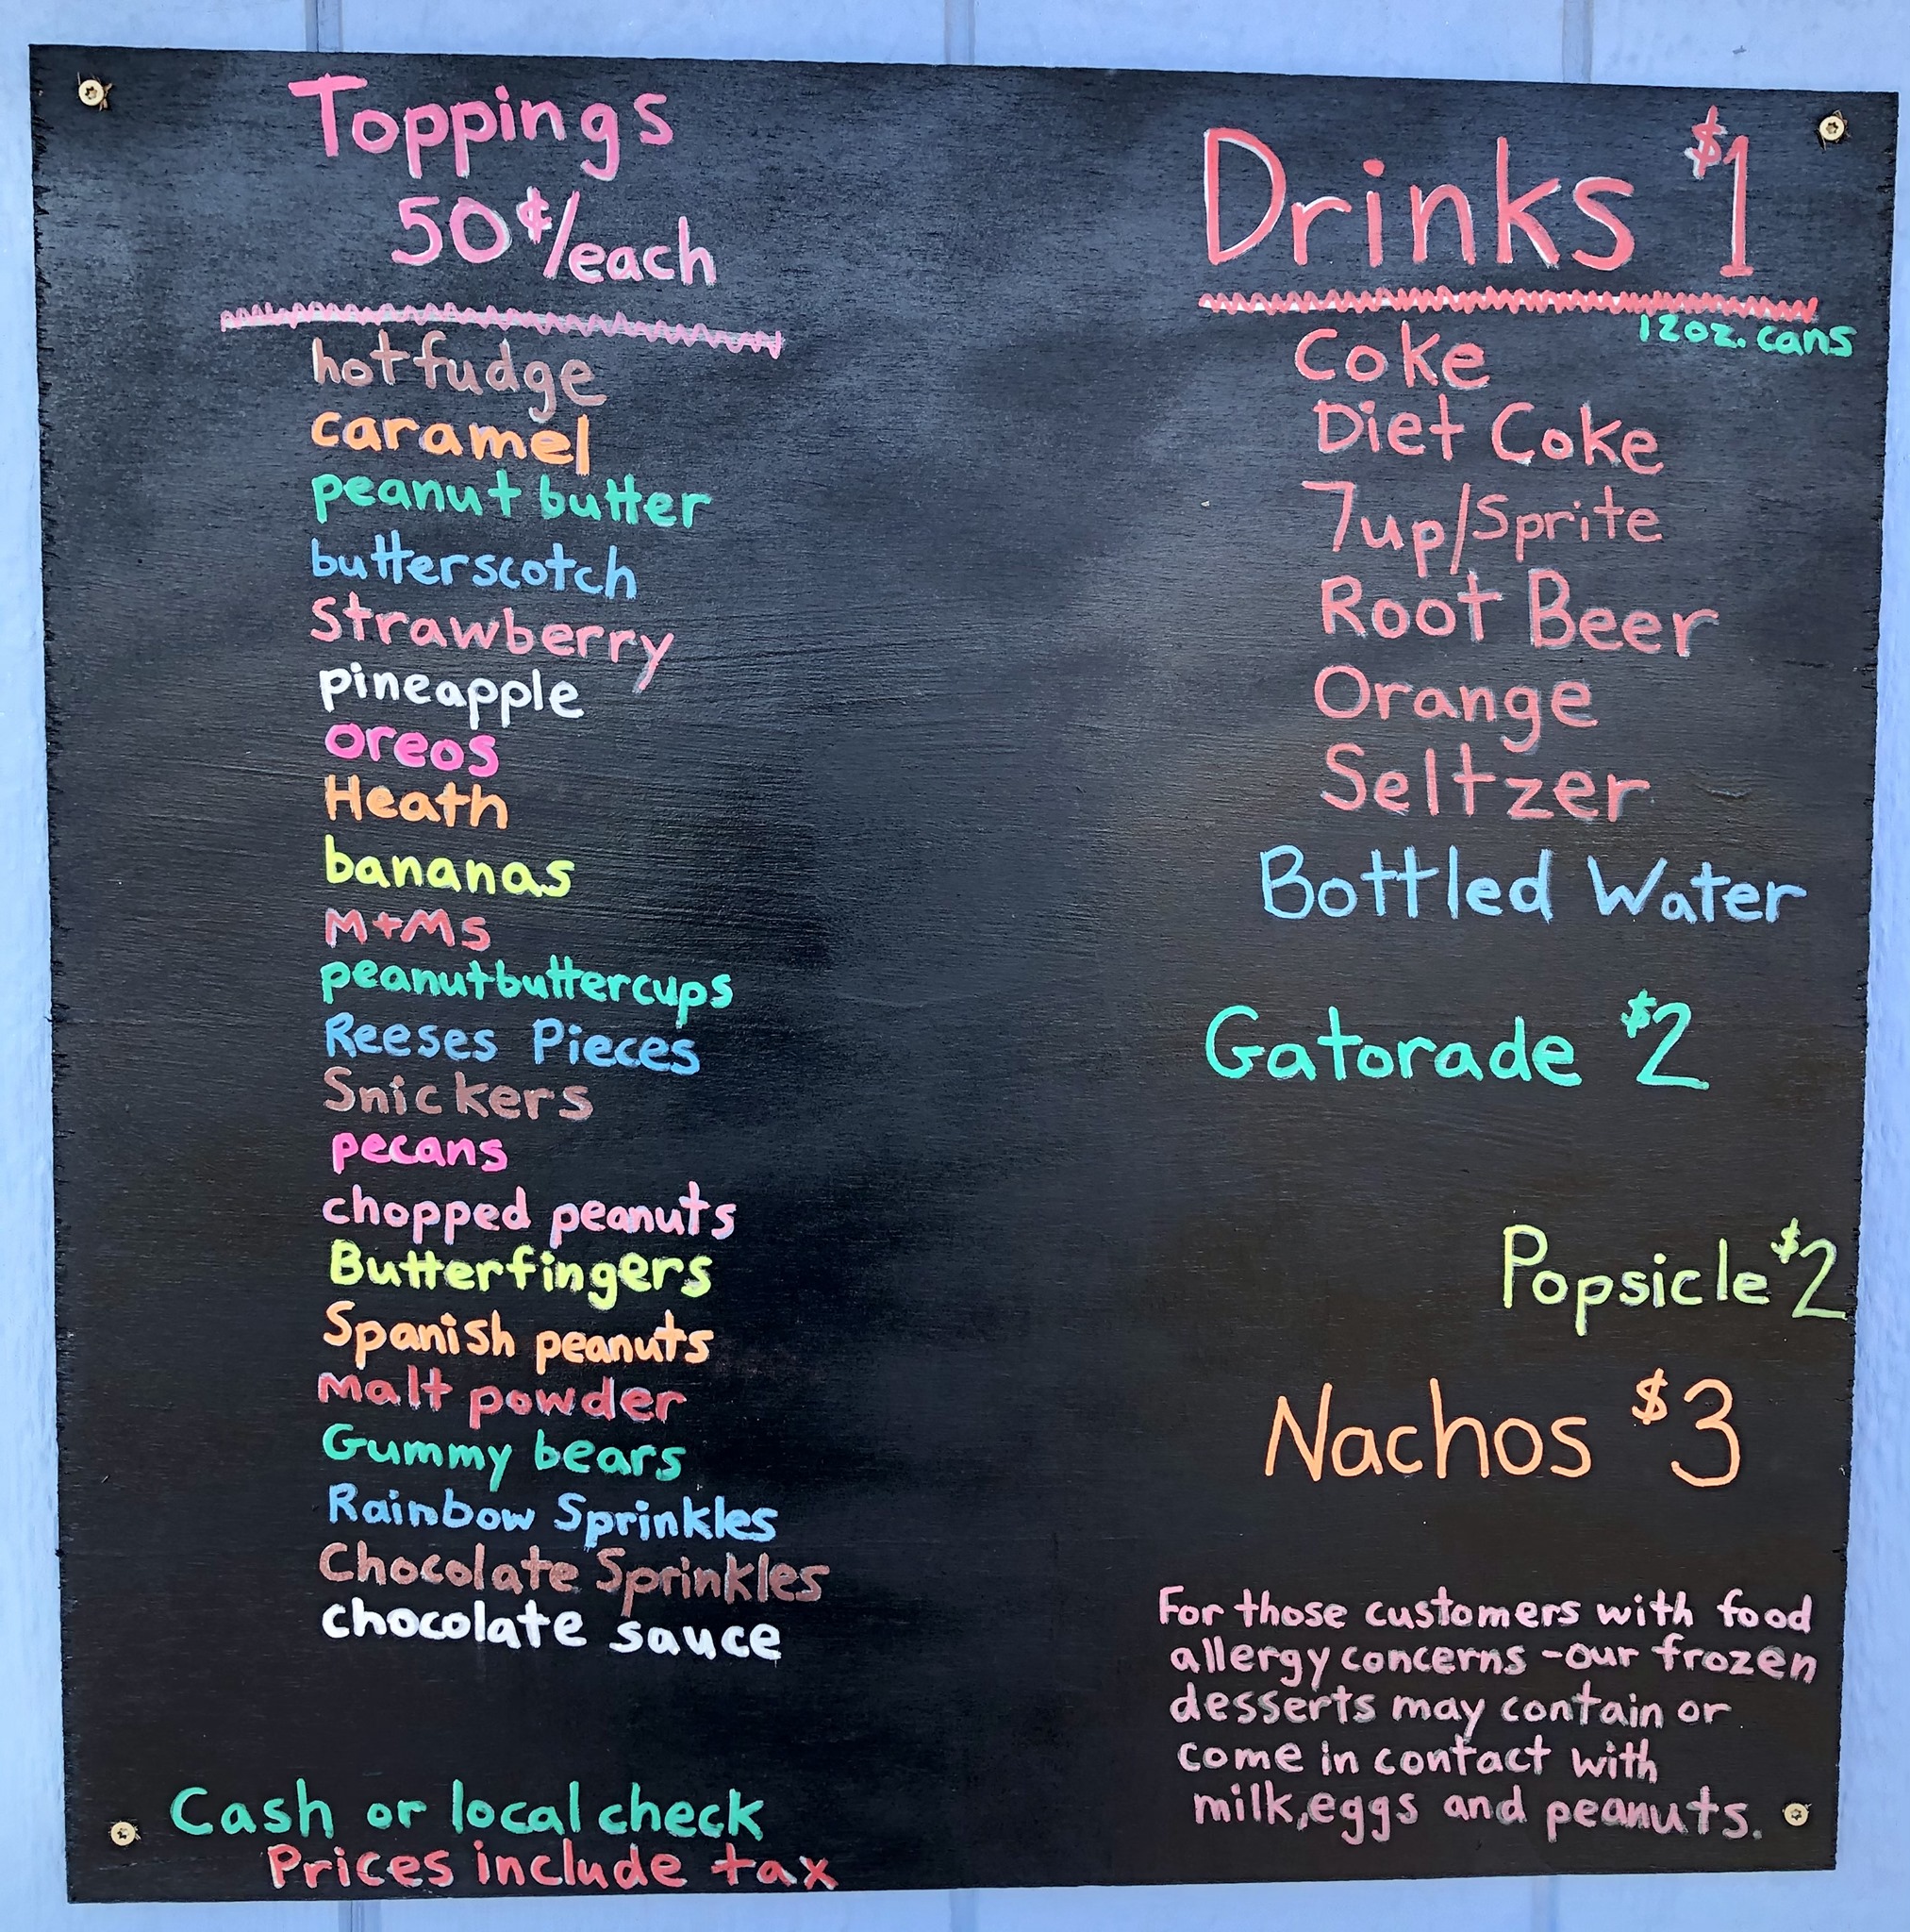 Toppings
50¢/each
hot fudge
caramel
peanut butter
butterscotch
Strawberry
pineapple
oreos
Heath
bananas
M+Ms
peanutbuttercups
Reeses Pieces
Snickers
pecans
chopped peanuts
Butterfingers
Spanish peanuts
Malt powder
Gummy bears
Rainbow Sprinkles
Chocolate Sprinkles
chocolate sauce
Cash or local check
Prices include tax
Drinks $1
12oz. cans
Coke
Diet Coke
7up/Sprite
Root Beer
Orange
Seltzer
Bottled Water
Gatorade $2
Popsicle $2
Nachos $3
For those customers with food
allergy concerns - our frozen
desserts may contain or
come in contact with
milk, eggs and peanuts.